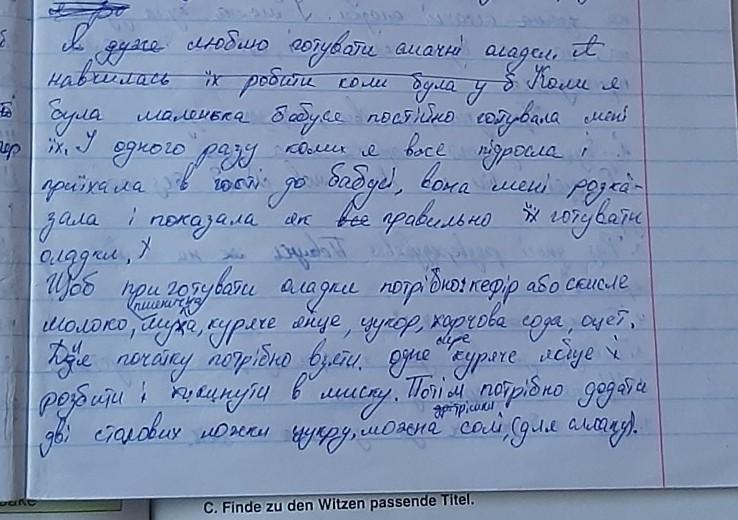 Я дуже люблю готувати смачні оладки. Я
навчилась їх робити коли була у 6 Коли я
була маленька бабуся постійно готувала мені
їх. І одного разу коли я вже підросла і
приїхала в гості до бабусі, вона мені розка-
зала і показала як все правильно їх готувати
оладки.
Щоб приготувати оладки потрібно: кефір або скисле
молоко, пшенична мука, куряче яйце, цукор, харчова сода, оцет.
Для початку потрібно взяти одне куряче яйце і
розбити і кинути в миску. Потім потрібно додати
дві столових ложки цукру, можна дрітрішки солі, (для смаку).
C. Finde zu den Witzen passende Titel.